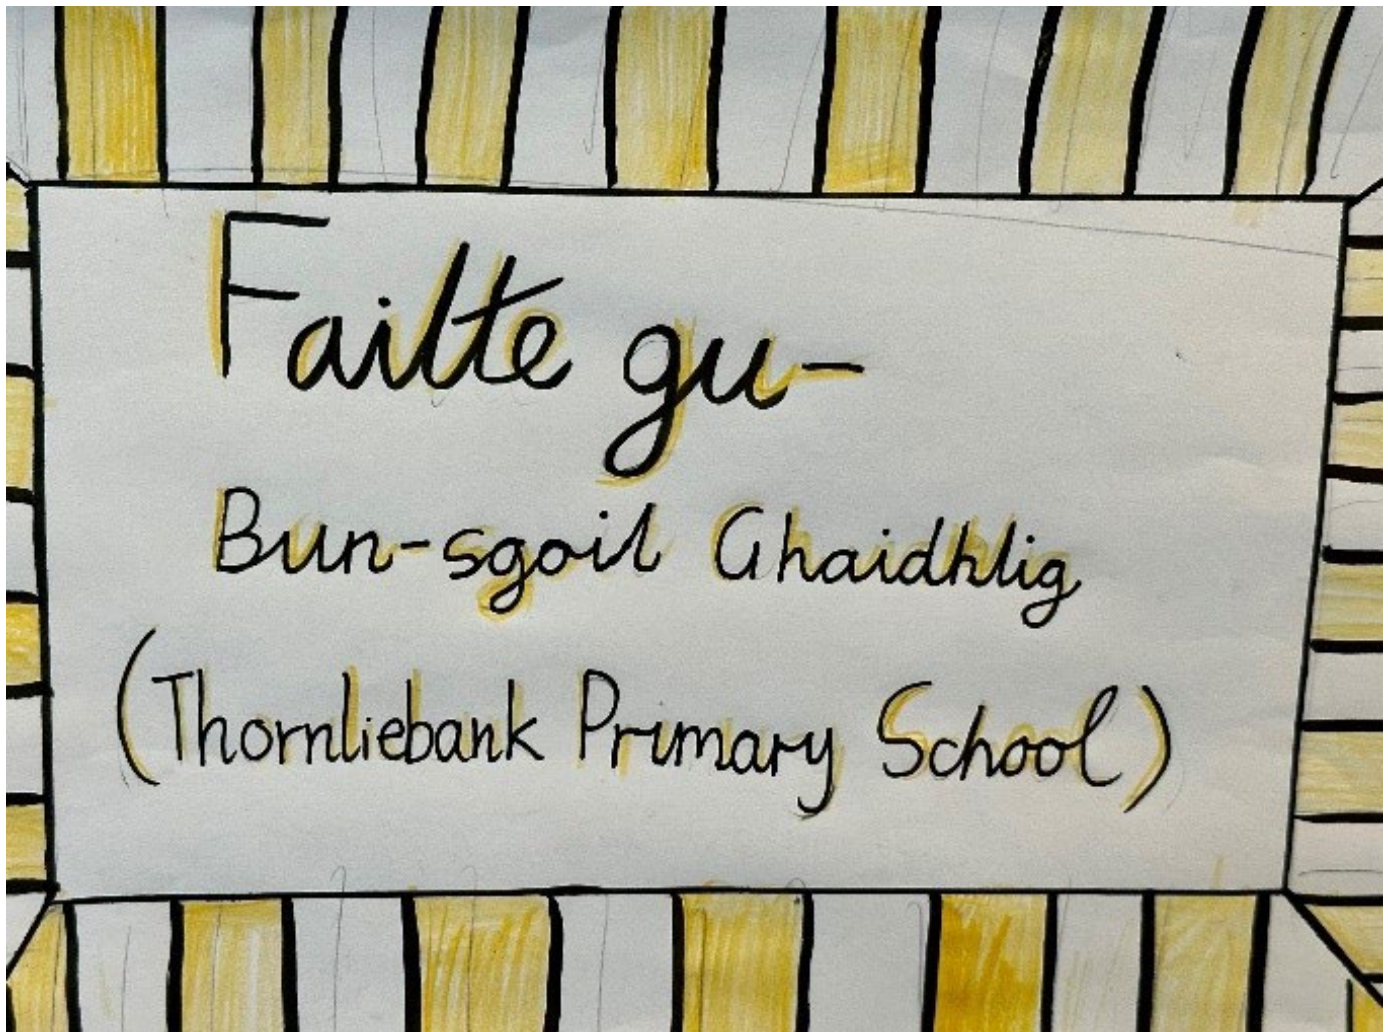 Failte gu-
Bun-sgoil Ghaidhlig
(Thornliebank Primary School)